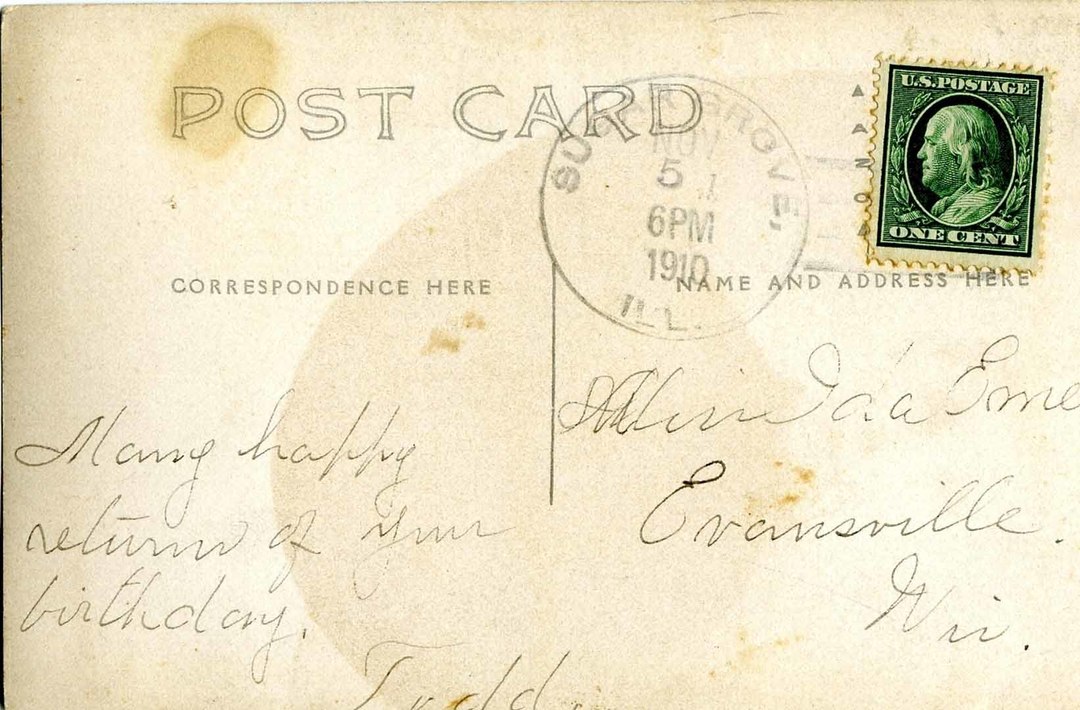 POST CARD
SUGAR GROVE,
NOV
5
6PM
1910
ILL.
U.S. POSTAGE
ONE CENT
CORRESPONDENCE HERE
NAME AND ADDRESS HERE
Many happy
returns of your
birthday.
Todd.
Miss Ida Eme
Evansville.
Wis.